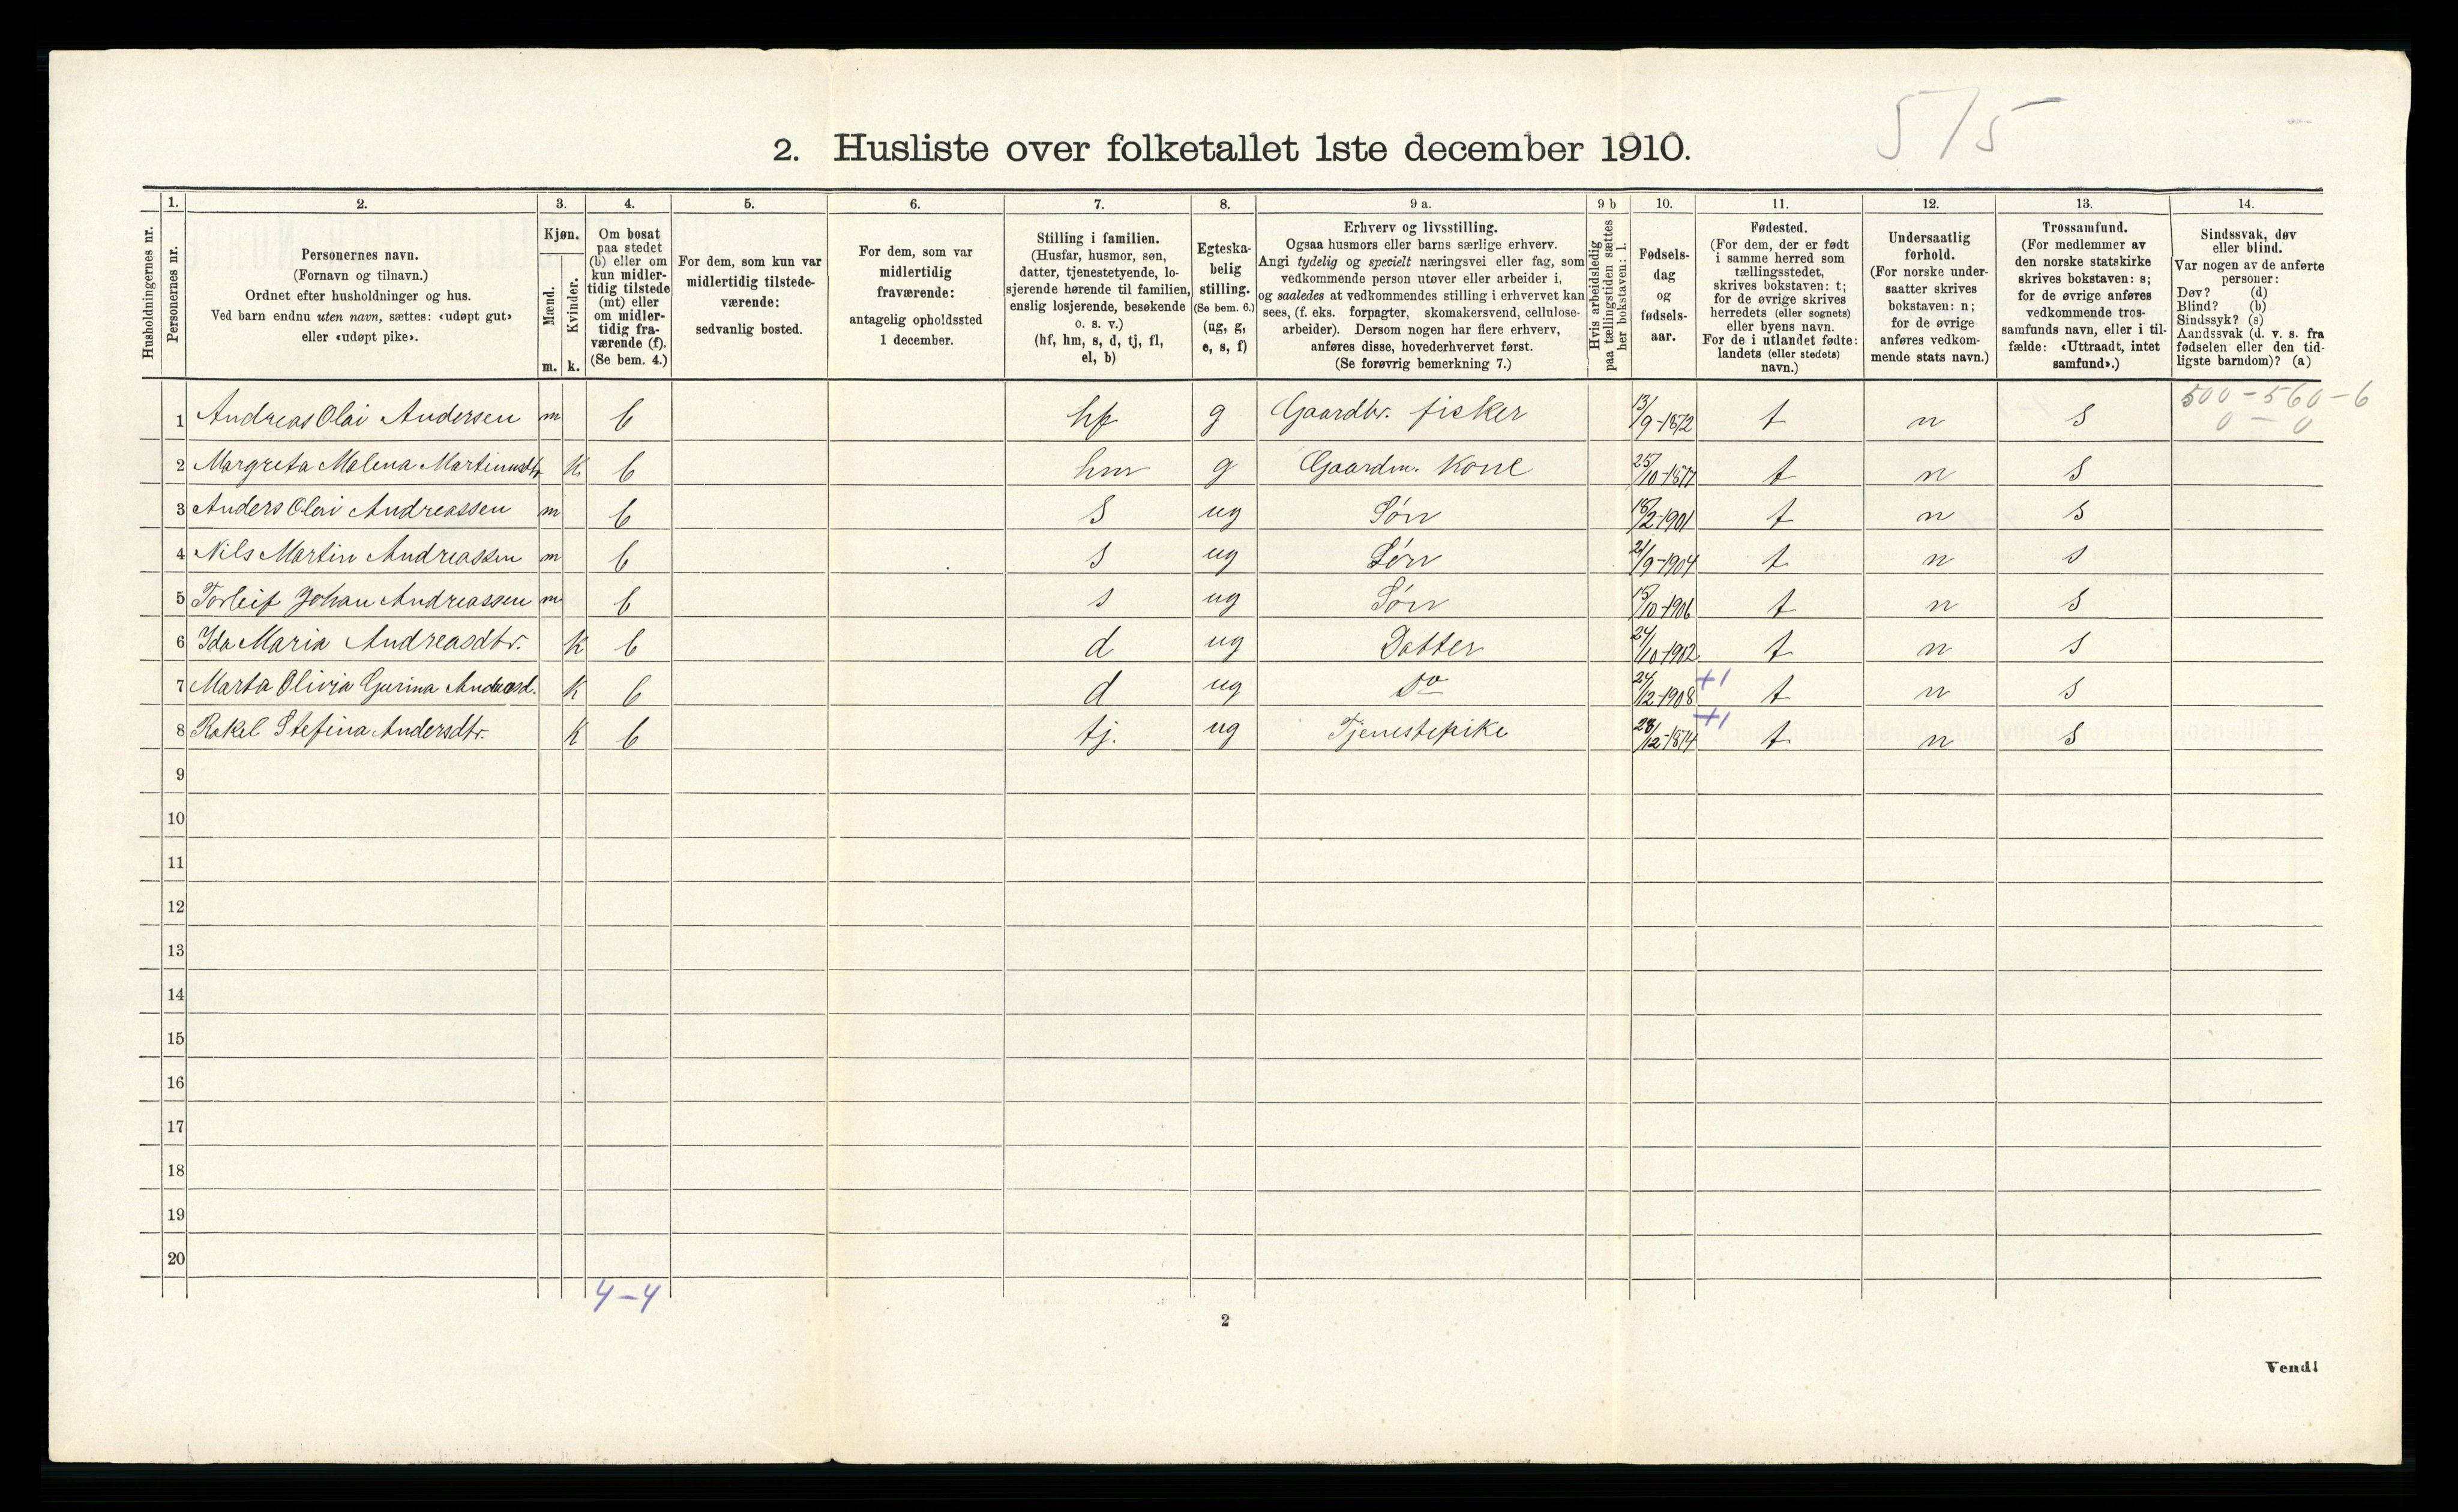 575
2. Husliste over folketallet 1ste december 1910.
Husholdningernes nr.
1. 2. 3. 4. 5. 6. 7. 8. 9 a. 9 b 10. 11. 12. 13. 14.
Personernes nr.
Personernes navn.
(Fornavn og tilnavn.)
Ordnet efter husholdninger og hus.
Ved barn endnu uten navn, sættes: «udøpt gut»
eller «udøpt pike».
Kjøn.
Mænd.
Kvinder.
m. k.
Om bosat
paa stedet
(b) eller om
kun midler-
tidig tilstede
(mt) eller
om midler-
tidig fra-
værende (f).
(Se bem. 4.)
For dem, som kun var
midlertidig tilstede-
værende:
sedvanlig bosted.
For dem, som var
midlertidig
fraværende:
antagelig opholdssted
1 december.
Stilling i familien.
(Husfar, husmor, søn,
datter, tjenestetyende, lo-
sjerende hørende til familien,
enslig losjerende, besøkende
o. s. v.)
(hf, hm, s, d, tj, fl,
el, b)
Egteska-
belig
stilling.
(Se bem. 6.)
(ug, g,
e, s, f)
Erhverv og livsstilling.
Ogsaa husmors eller barns særlige erhverv.
Angi tydelig og specielt næringsvei eller fag, som
vedkommende person utøver eller arbeider i,
og saaledes at vedkommendes stilling i erhvervet kan
sees, (f. eks. forpagter, skomakersvend, cellulose-
arbeider). Dersom nogen har flere erhverv,
anføres disse, hovederhvervet først.
(Se forøvrig bemerkning 7.)
Hvis arbeidsledig
paa tællingstiden sættes
her bokstaven: l.
Fødsels-
dag
og
fødsels-
aar.
Fødested.
(For dem, der er født
i samme herred som
tællingsstedet,
skrives bokstaven: t;
for de øvrige skrives
herredets (eller sognets)
eller byens navn.
For de i utlandet fødte:
landets (eller stedets)
navn.)
Undersaatlig
forhold.
(For norske under-
saatter skrives
bokstaven: n;
for de øvrige
anføres vedkom-
mende stats navn.)
Trossamfund.
(For medlemmer av
den norske statskirke
skrives bokstaven: s;
for de øvrige anføres
vedkommende tros-
samfunds navn, eller i til-
fælde: «Uttraadt, intet
samfund».)
Sindssvak, døv
eller blind.
Var nogen av de anførte
personer:
Døv? (d)
Blind? (b)
Sindssyk? (s)
Aandssvak (d. v. s. fra
fødselen eller den tid-
ligste barndom)? (a)
500-560-6
0 - 0
1 Andreas Olai Andersen m b hf g Gaardbr. fisker 13/9-1872 t n s
2 Margreta Malena Martinusdtr K b hm g Gaardm. Kone 25/10-1877 t n s
3 Anders Olai Andreassen m b s ug Søn 18/2-1901 t n s
4 Nils Martin Andreassen m b s ug Søn 21/9-1904 t n s
5 Torleif Johan Andreassen m b s ug Søn 15/10-1906 t n s
6 Ida Maria Andreasdtr. K b d ug Datter 24/10-1902 t n s
7 Marta Olivia Gurina Andreasd. K b d ug Do 24/12-1908 +1 t n s
8 Rakel Stefina Andersdtr. K b tj. ug Tjenestepike 28/12-1874 +1 t n s
9
10
11
12
13
14
15
16
17
18
19
20
4-4
2
Vend!